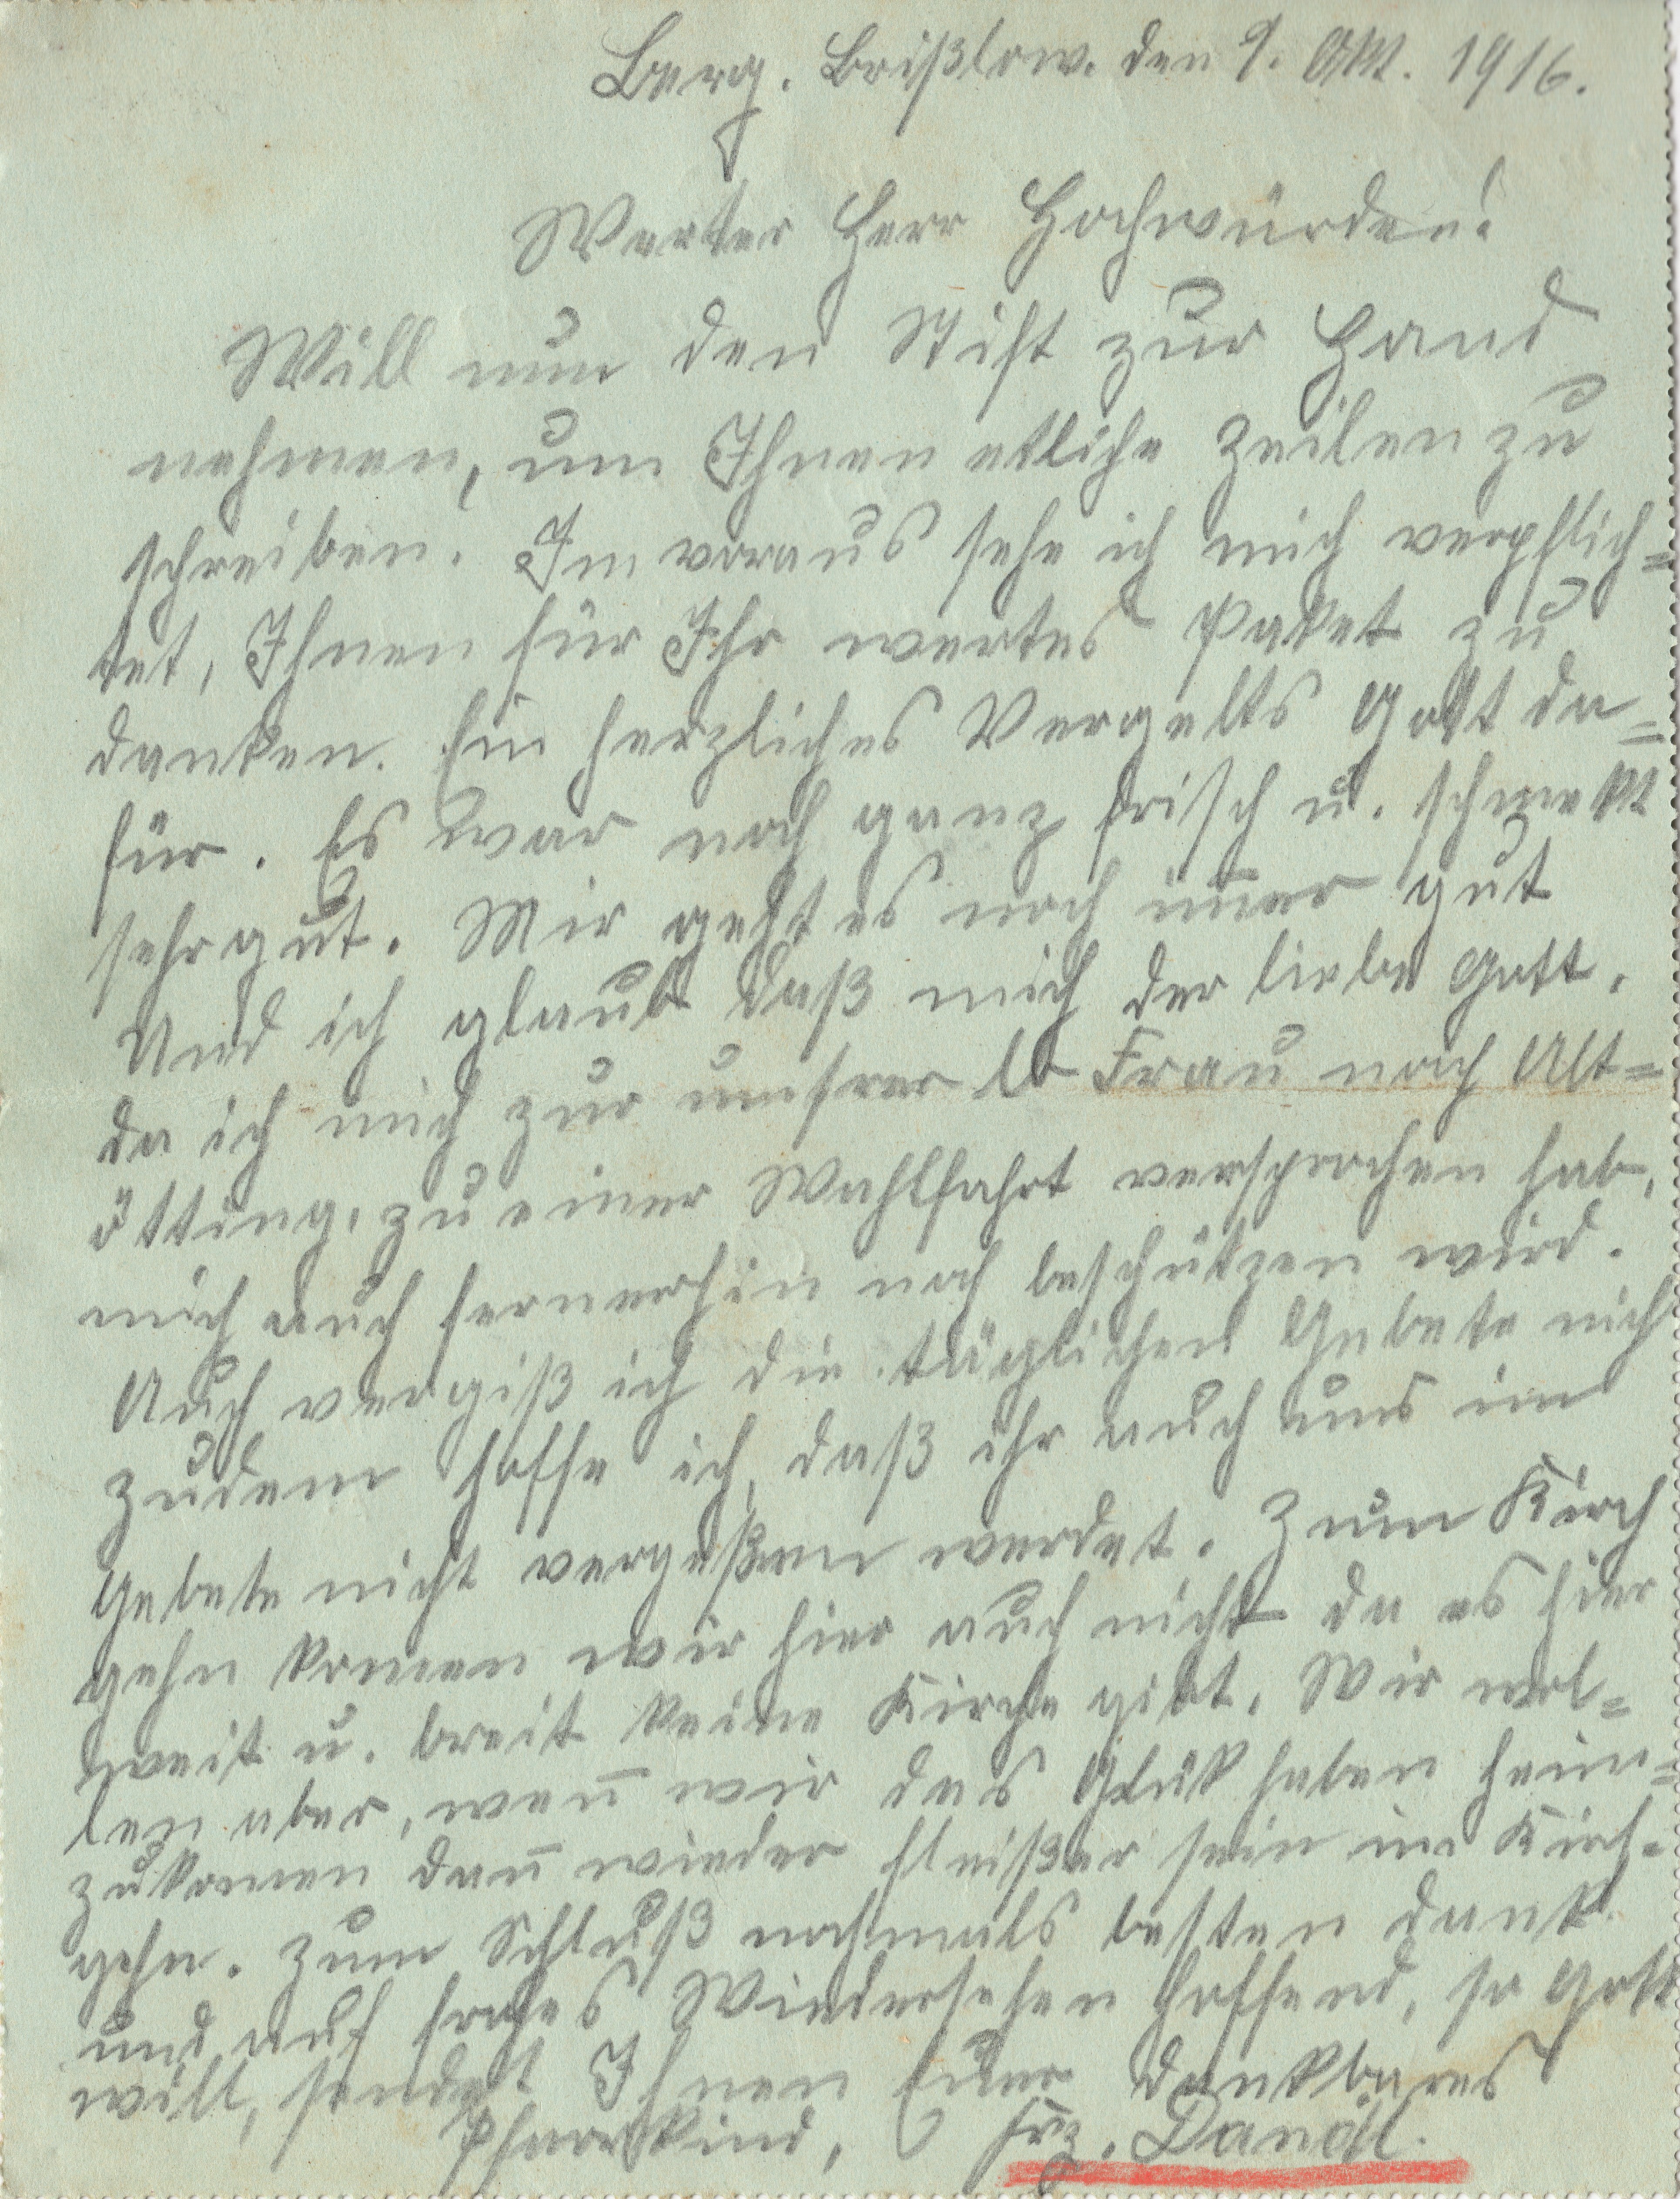 Berg. Brißlow. den 9. Okt. 1916.
Werter Herr Hochwürden!
Will nun den Stift zur Hand
nehmen, um Ihnen etliche Zeilen zu
schreiben. Im voraus sehe ich mich verpflich=
tet, Ihnen für Ihr wertes Paket zu
danken. Ein herzliches Vergelts Gott da=
für. Es war noch ganz frisch u. schmekt
sehr gut. Mir geht es noch im̅er gut
Und ich glaub daß mich der liebe Gott,
da ich mich zur unsrer lb Frau nach Alt=
ötting, zu einer Wahlfahrt versprochen hab,
mich auch fernerhin noch beschützen wird.
Auch vergiß ich die täglichen Gebete nicht
zudem hoffe ich, daß ihr auch uns im
Gebete nicht vergeßen werdet. Zum Kirch
gehn komen wir hier auch nicht da es hier
weit u. breit keine Kirche gibt. Wir wol=
len aber, wen̅ wir das Glük haben heim=
zukomen dan̅ wieder fleißer sein im Kirch-
gehn. Zum Schluß nochmals besten Dank
und auf frohes Wiedersehen hoffend, so Gott
will, sendet Ihnen Euer dankbares
Pfarrkind, Frz. Dandl.